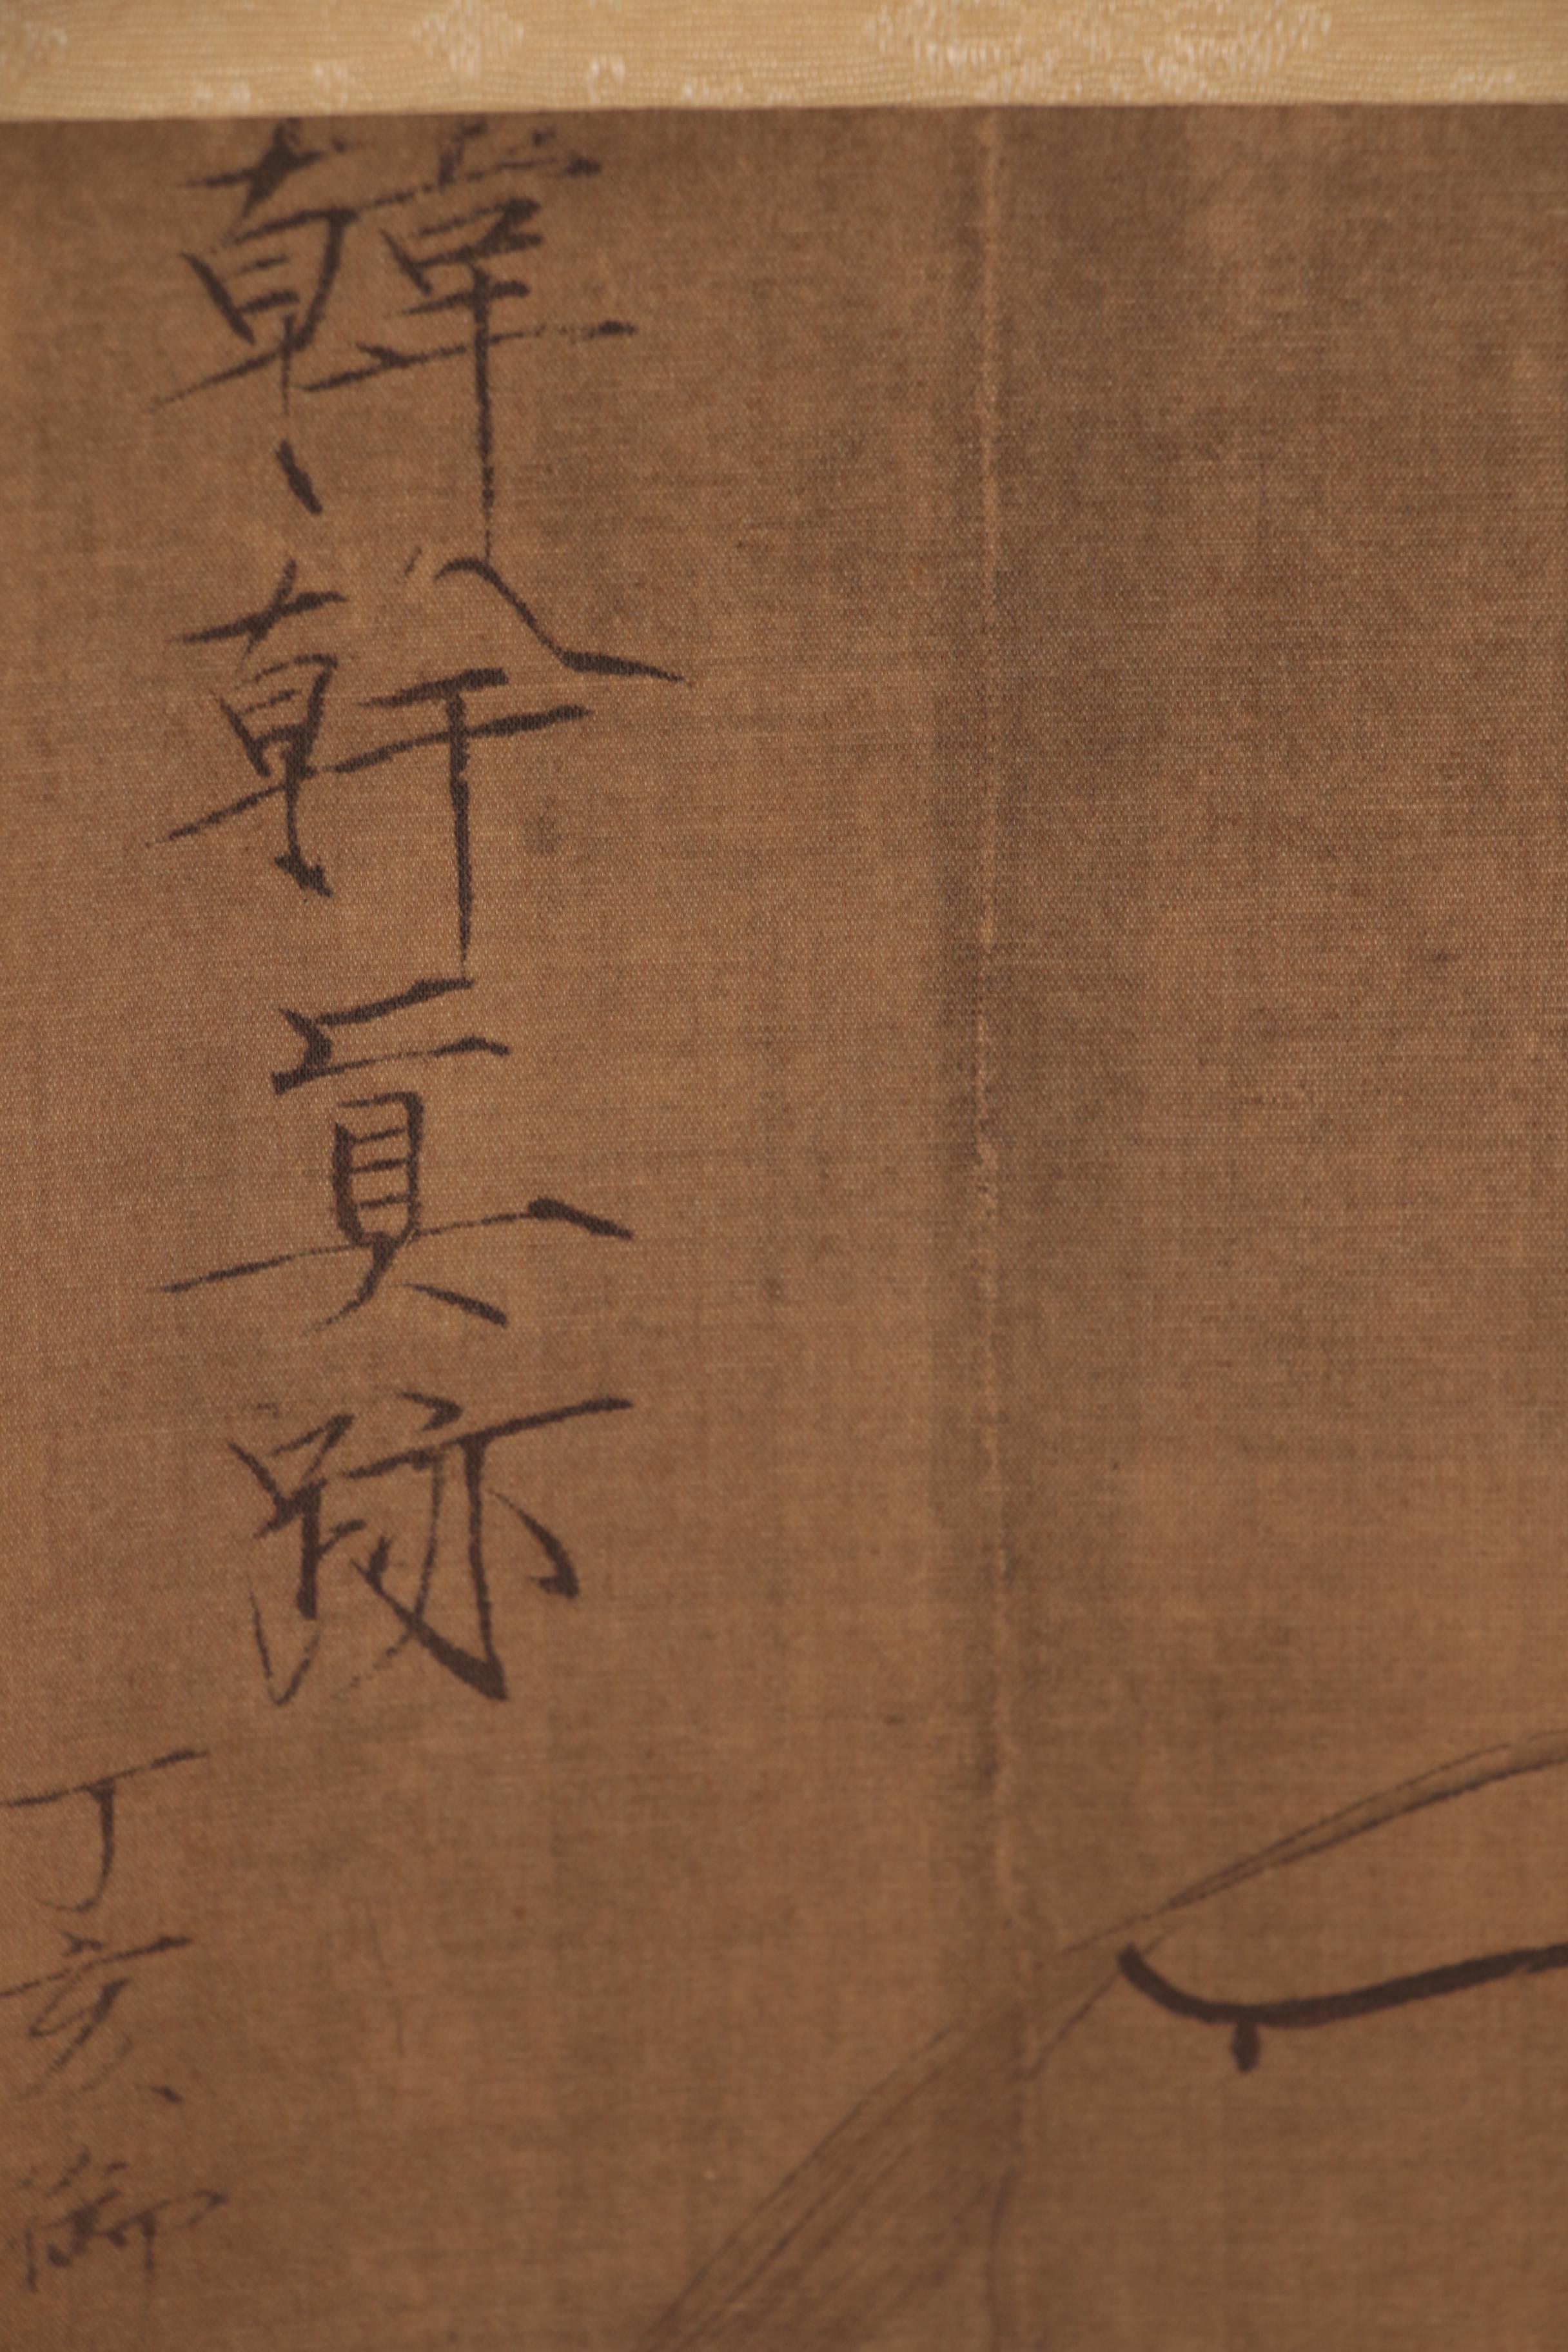 韓幹真跡
丁亥御